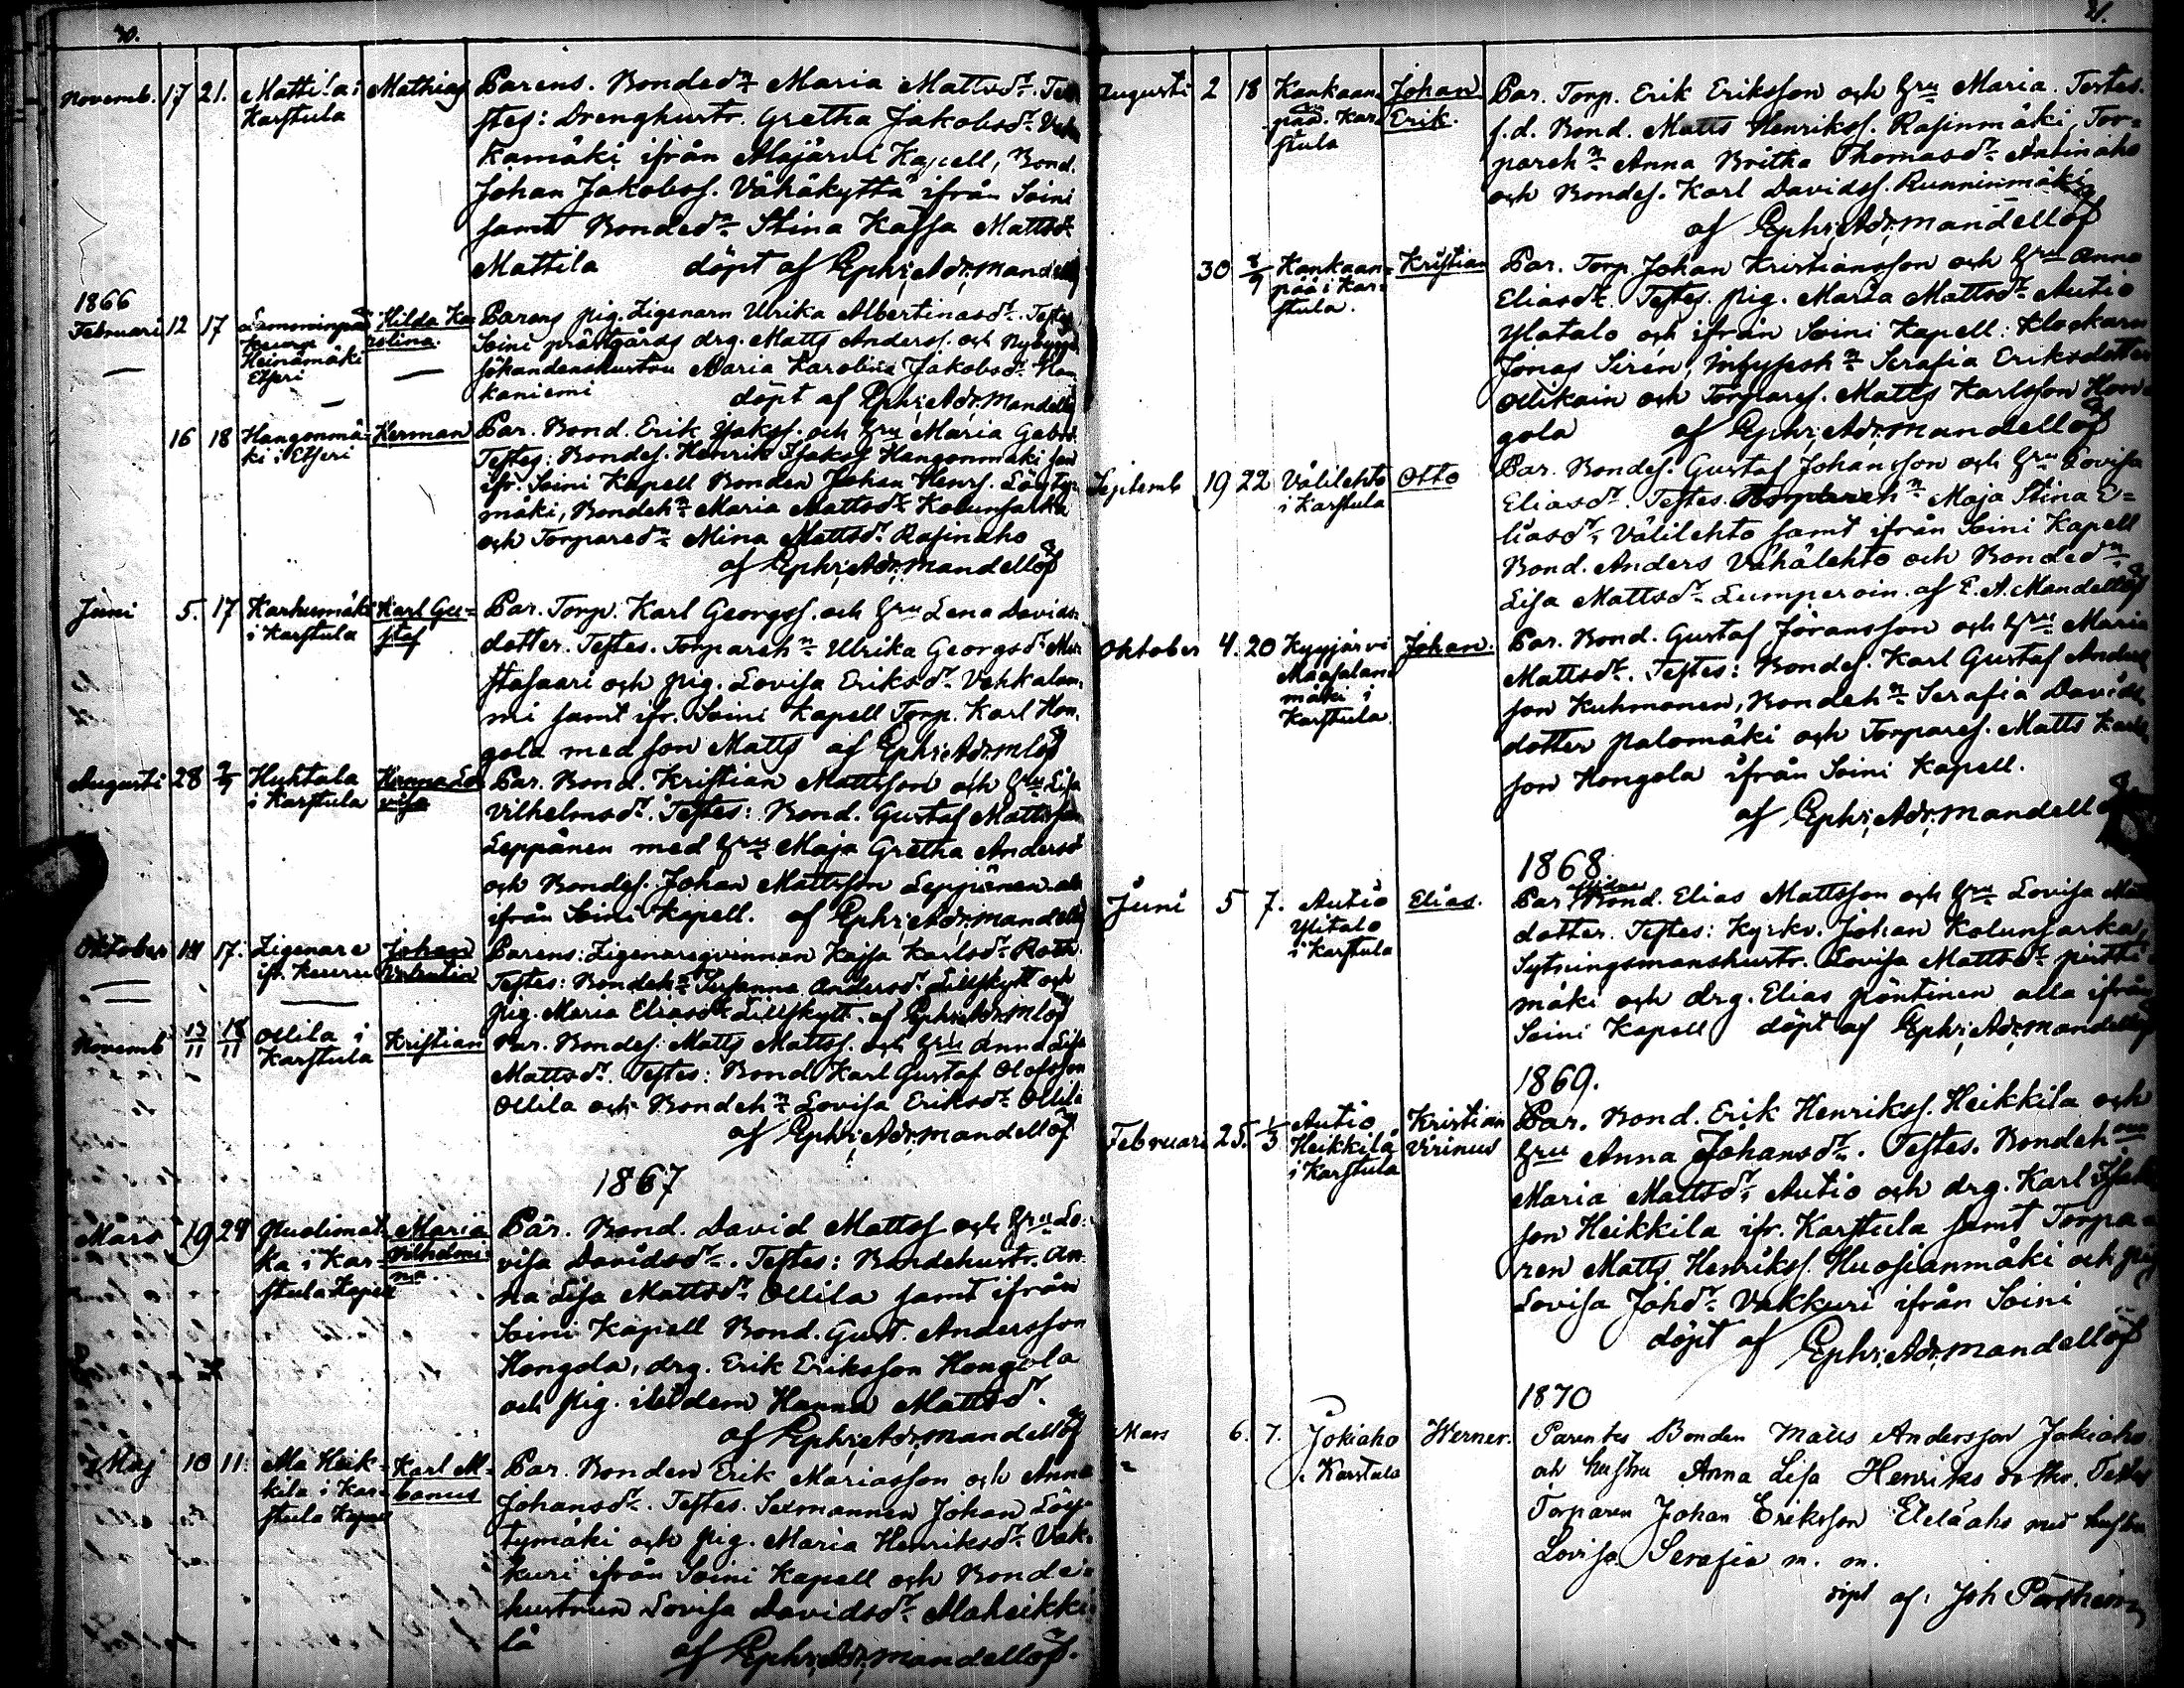 30.
Novemb. 17 21. Mattila i Mathias Parens. Bondedr Maria Mattsdr. Te-
Karstula stes: Drenghustr. Gretha Jakobsdr.
kamäki ifrån Alajärvi Kapell, Bond.
Johan Jakobss. Vähäkyttä ifrån Soini
samt Bondedr. Stina Kaisa Mattsdr.
Mattila döpt af Ephr. Adr. Mandellöf
1866
Februari 12 17 Hilda Ka- Parens pig. Zigenarn Ulrika Albertinasdr. Testes
Keuru rolina. Soini prästgårds drg. Matts Anderss. och
Heinämäki hustrun Maria Karolina Jakobsdr.
Etseri kaniemi döpt af Ephr. Adr. Mandellöf
16 18 Hangonmä- Herman Par. Bond. Erik Isakss. och hru Maria Gabrs.
ki i Etseri Testes: Bondes. Henrik Isakss. Hangonmäki samt
ifr. Soini Kapell Bonden Johan Henrs. Löyty-
mäki, Bondehn Maria Mattsdr. Kolunsarka
och Torparedr. Mina Mattsdr. Rasinaho
af Ephr. Adr. Mandellöf
Juni 5. 17 Karhumäki Karl Gu- Par. Torp. Karl Georgss. och hru Lena Davids-
i Karstula staf dotter. Testes. Torparehn Ulrika Georgsdr. Mu-
stasaari och pig. Lovisa Eriksdr. Vehkalam-
mi samt ifr. Soini Kapell Torp. Karl Hon-
gola med son Matts af Ephr. Adr. Mlöf
Augusti 28 2/9 Huhtala Hanna Lo- Par. Bond. Kristian Mattsson och hru Lisa
i Karstula visa Vilhelmsdr. Testes: Bond. Gustaf Mattsson
Leppänen med hru Maja Gretha Andersdr
och Bondes. Johan Mattsson Leppänen alla
ifrån Soini Kapell. af Ephr. Adr. Mandellöf
Oktober 14 17. Zigenare Johan Parens: Zigenareqvinnan Kajsa Karlsdr. Roth.
ifr. Keuru Valentin Testes: Bondehn Susanna Andersdr. Lillkytt och
pig. Maria Eliasdr Lillkytt. af Ephr. Adr. Mlöf
Novemb 13/11 18/11 Ollila i Kristian Par. Bondes. Matts Mattss. och hru Anna Lisa
Karstula Mattsdr. Testes: Bond. Karl Gustaf Olofsson
Ollila och Bondehn Lovisa Eriksdr. Ollila
af Ephr. Adr. Mandellöf
1867
Mars 19 24 Puolimat- Maria Par. Bond. David Mattss och hru Lo-
ka i Kar- Vilhelmi- visa Davidsdr. Testes: Bondehustr. An-
stula Kapell na. na Lisa Mattsdr. Ollila samt ifrån
Soini Kapell Bond. Gust. Andersson
Hongola, drg. Erik Eriksson Hongola
och pig. ibidem Hanna Mattsdr.
af Ephr. Adr. Mandellöf
Maj 10 11. Ala Heik- Karl Al- Par. Bonden Erik Mariasson och Anna
kilä i Kar- banus Johansdr. Testes. Sexmannen Johan Löy-
stula Kapell tymäki och pig. Maria Henriksdr. Vak-
kuri ifrån Soini Kapell och Bonde-
hustrun Lovisa Davidsdr. Alaheikki-
lä af Ephr. Adr. Mandellöf.
31.
Augusti 2 18 Kankaan- Johan Par. Torp. Erik Eriksson och hru Maria. Testes.
pää. Kar- Erik. f.d. Bond. Matts Henrikss. Rasinmäki, Tor-
stula parehn Anna Britha Thomasdr. Antinaho
och Bondes. Karl Davidss. Runninmäki
af Ephr. Adr. Mandellöf
30 8/9 Kankaan- Kristian Par. Torp. Johan Kristiansson och hru Anna
pää i Kar- Eliasdr. Testes. pig. Maria Mattsdr. Autio
stula. Ylatalo och ifrån Soini Kapell: Klockaren
Jonas Sirén, Inhysesh n Serafia Eriksdotter
Ollikain och Torpares. Matts Karlsson Hon-
gola af Ephr. Adr. Mandellöf
Septemb 19 22 Välilehto Otto Par. Bondes. Gustaf Johansson och hru Lovisa
i Karstula Eliasdr. Testes. Torparehn Maja Stina E-
liasdr, Välilehto samt ifrån Soini Kapell
Bond. Anders Vähälehto och Bondedn
Lisa Mattsdr. Lumperoin. af E. A. Mandellöf
Oktober 4. 20 Kyyjärvi Johan. Par. Bond. Gustaf Jöransson och hru Maria
Maasalan- Mattsdr. Testes: Bondes. Karl Gustaf Anders-
mäki i son Kuhmonen, Bondehn Serafia Davids-
Karstula. dotter Palomäki och Torpares. Matts Karls-
son Hongola ifrån Soini Kapell.
af Ephr. Adr. Mandellöf
1868
Juni 5 7. Autio Elias. Par. Bond. Elias Mattsson och hru Lovisa
Ylitalo dotter. Testes: Kyrkv. Johan Kolunsarka,
i Karstula Sytningsmanshustr. Lovisa Mattsdr. Pirtti-
mäki och drg. Elias Pöntinen alla ifrån
Soini Kapell döpt af Ephr. Adr. Mandellöf
1869.
Februari 25. 1/3 Autio Kristian Par. Bond. Erik Henrikss. Heikkilä och
Heikkilä Virinus hru Anna Johansdr. Testes. Bondehn
i Karstula Maria Mattsdr, Autio och drg. Karl Isaks-
son Heikkila ifr. Karstula samt Torpa-
ren Matts Henrikss. Huosianmäki och pig
Lovisa Johdr. Vakkuri ifrån Soini
döpt af Ephr. Adr. Mandellöf
1870
Mars 6. 7. Jokiaho Werner. Parentes Bonden Matts Andersson Jokiaho
i Karstula och hustru Anna Lisa Henriks dotter. Testes
Torparen Johan Eriksson Eteläaho med hustru
Lovisa Serafia m. m.
döpt af: Joh